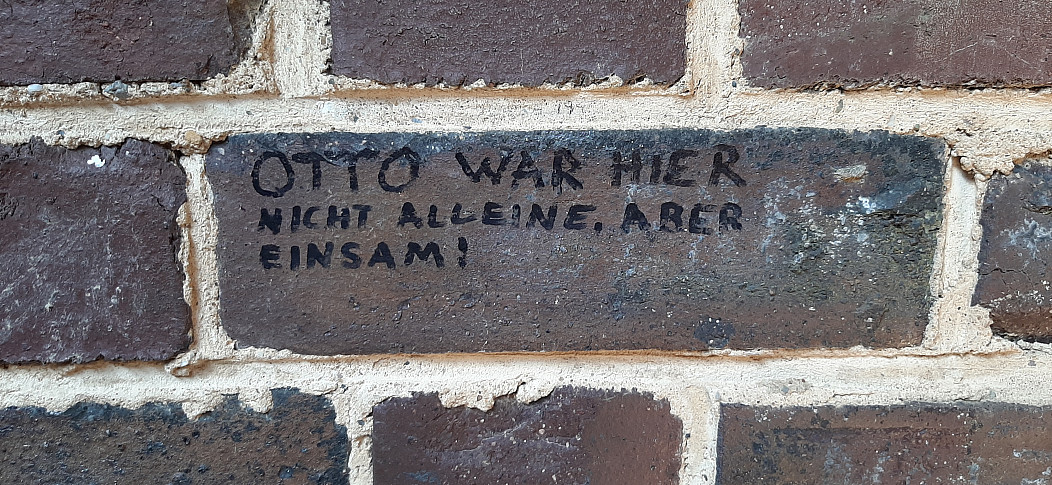 OTTO WAR HIER
NICHT ALLEINE, ABER
EINSAM!